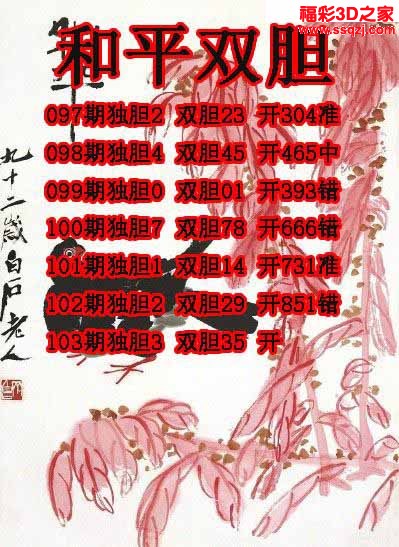 福彩3D之家
www.ssqzj.com
和平双胆
097期独胆2 双胆23 开304准
098期独胆4 双胆45 开465中
099期独胆0 双胆01 开393错
100期独胆7 双胆78 开666错
101期独胆1 双胆14 开731准
102期独胆2 双胆29 开851错
103期独胆3 双胆35 开
九十二岁白石老人